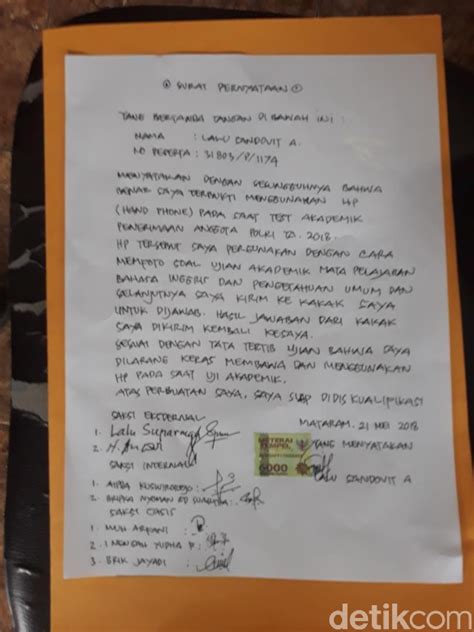 SURAT PERNYATAAN
YANG BERTANDA TANGAN DI BAWAH INI :
NAMA : LALU DANDOVIT A.
NO PESERTA : 31803/P/1174
MENYATAKAN DENGAN SESUNGGUHNYA BAHWA
BENAR SAYA TERBUKTI MENGGUNAKAN HP
(HAND PHONE) PADA SAAT TEST AKADEMIK
PENERIMAAN ANGGOTA POLRI TA. 2018.
HP TERSEBUT SAYA PERGUNAKAN DENGAN CARA
MEMFOTO SOAL UJIAN AKADEMIK MATA PELAJARAN
BAHASA INGGRIS DAN PENGETAHUAN UMUM DAN
SELANJUTNYA SAYA KIRIM KE KAKAK SAYA
UNTUK DIJAWAB. HASIL JAWABAN DARI KAKAK
SAYA DIKIRIM KEMBALI KESAYA.
SESUAI DENGAN TATA TERTIB UJIAN BAHWA SAYA
DILARANG KERAS MEMBAWA DAN MENGGUNAKAN
HP PADA SAAT UJI AKADEMIK.
ATAS PERBUATAN SAYA, SAYA SIAP DIDISKUALIFIKASI
MATARAM, 21 MEI 2018
SAKSI EKSTERNAL
YANG MENYATAKAN
1. Lalu
2.
METERAI TEMPEL
6000
LALU DANDOVIT A
SAKSI INTERNAL
1. AIPDA
2. BRIPKA NYOMAN
SAKSI CASIS
1. MUH
2. I NENGAH YUDHA P.
3. ERIK JAYADI
detikcom